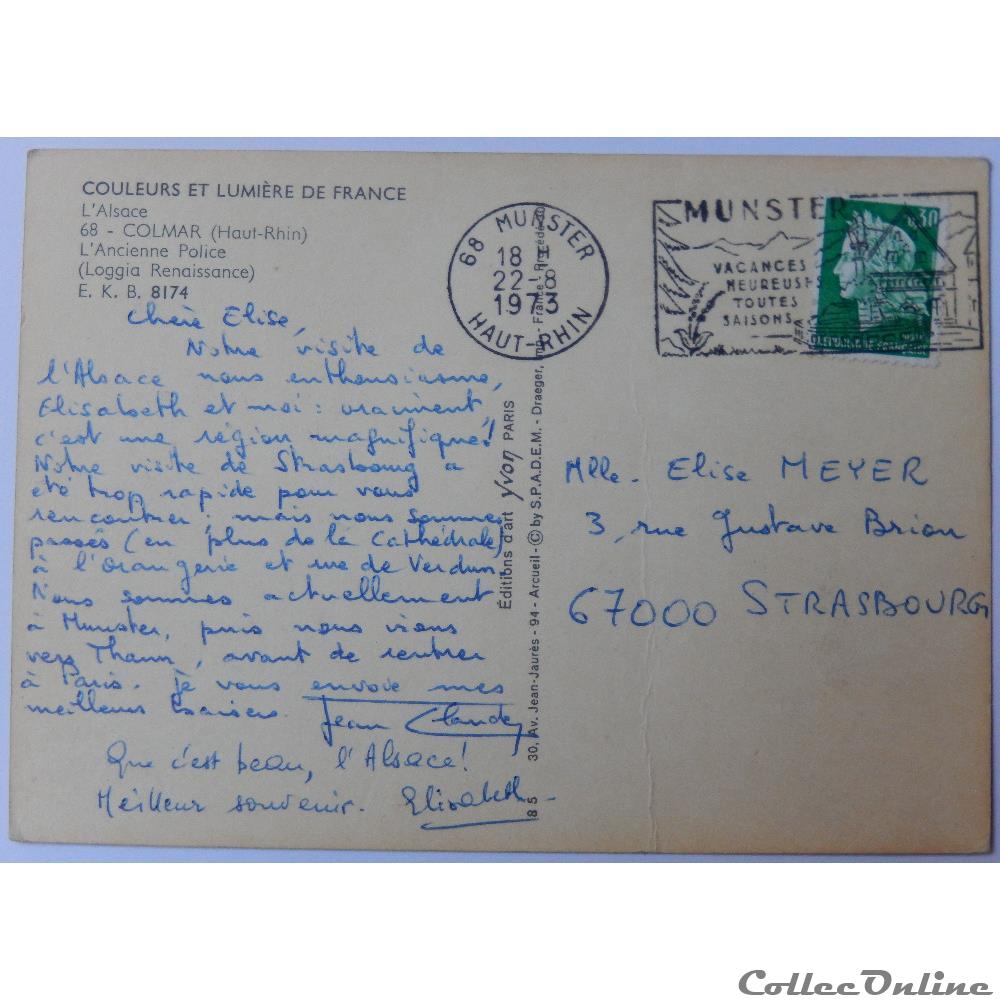 COULEURS ET LUMIÈRE DE FRANCE
L'Alsace
68 - COLMAR (Haut-Rhin)
L'Ancienne Police
(Loggia Renaissance)
E. K. B. 8174
Chère Elise,
Notre visite de
l'Alsace nous enthousiasme,
Elisabeth et moi : vraiment,
c'est une région magnifique!
Notre visite de Strasbourg a
été trop rapide pour vous
rencontrer ; mais nous sommes
passés (en plus de la Cathédrale)
à l'orangerie et rue de Verdun.
Nous sommes actuellement
à Munster, puis nous irons
vers Thann, avant de rentrer
à Paris. Je vous envoie mes
meilleurs baisers. Jean Claude
Que c'est beau, l'Alsace!
Meilleur souvenir. Elisabeth
Éditions d'art yvon PARIS
30, Av. Jean-Jaurès - 94 - Arcueil - © by S.P.A.D.E.M. - Draeger, Imp. - France - Procédé
85
68 MUNSTER
18 H
22-8
1973
HAUT-RHIN
MUNSTER
VACANCES
HEUREUSES
TOUTES
SAISONS
0,30
REPUBLIQUE FRANÇAISE
Mlle. Elise MEYER
3, rue Gustave Brion
67000 STRASBOURG
CollecOnline